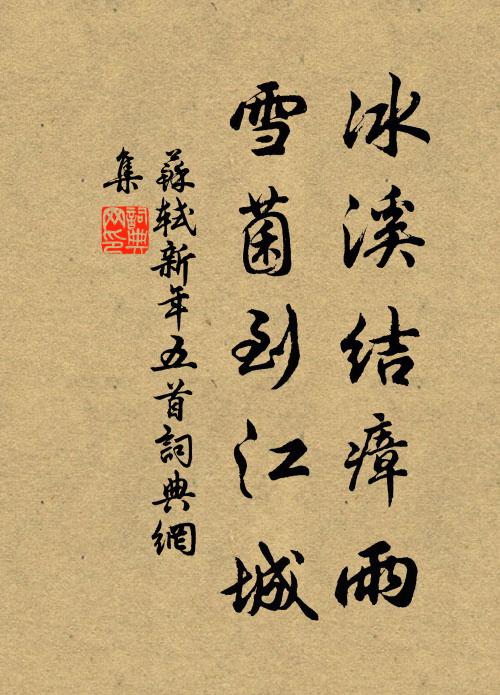 冰溪结瘴雨
雪菌到江城
蘇軾新年五首詞典網
集
詞典网印